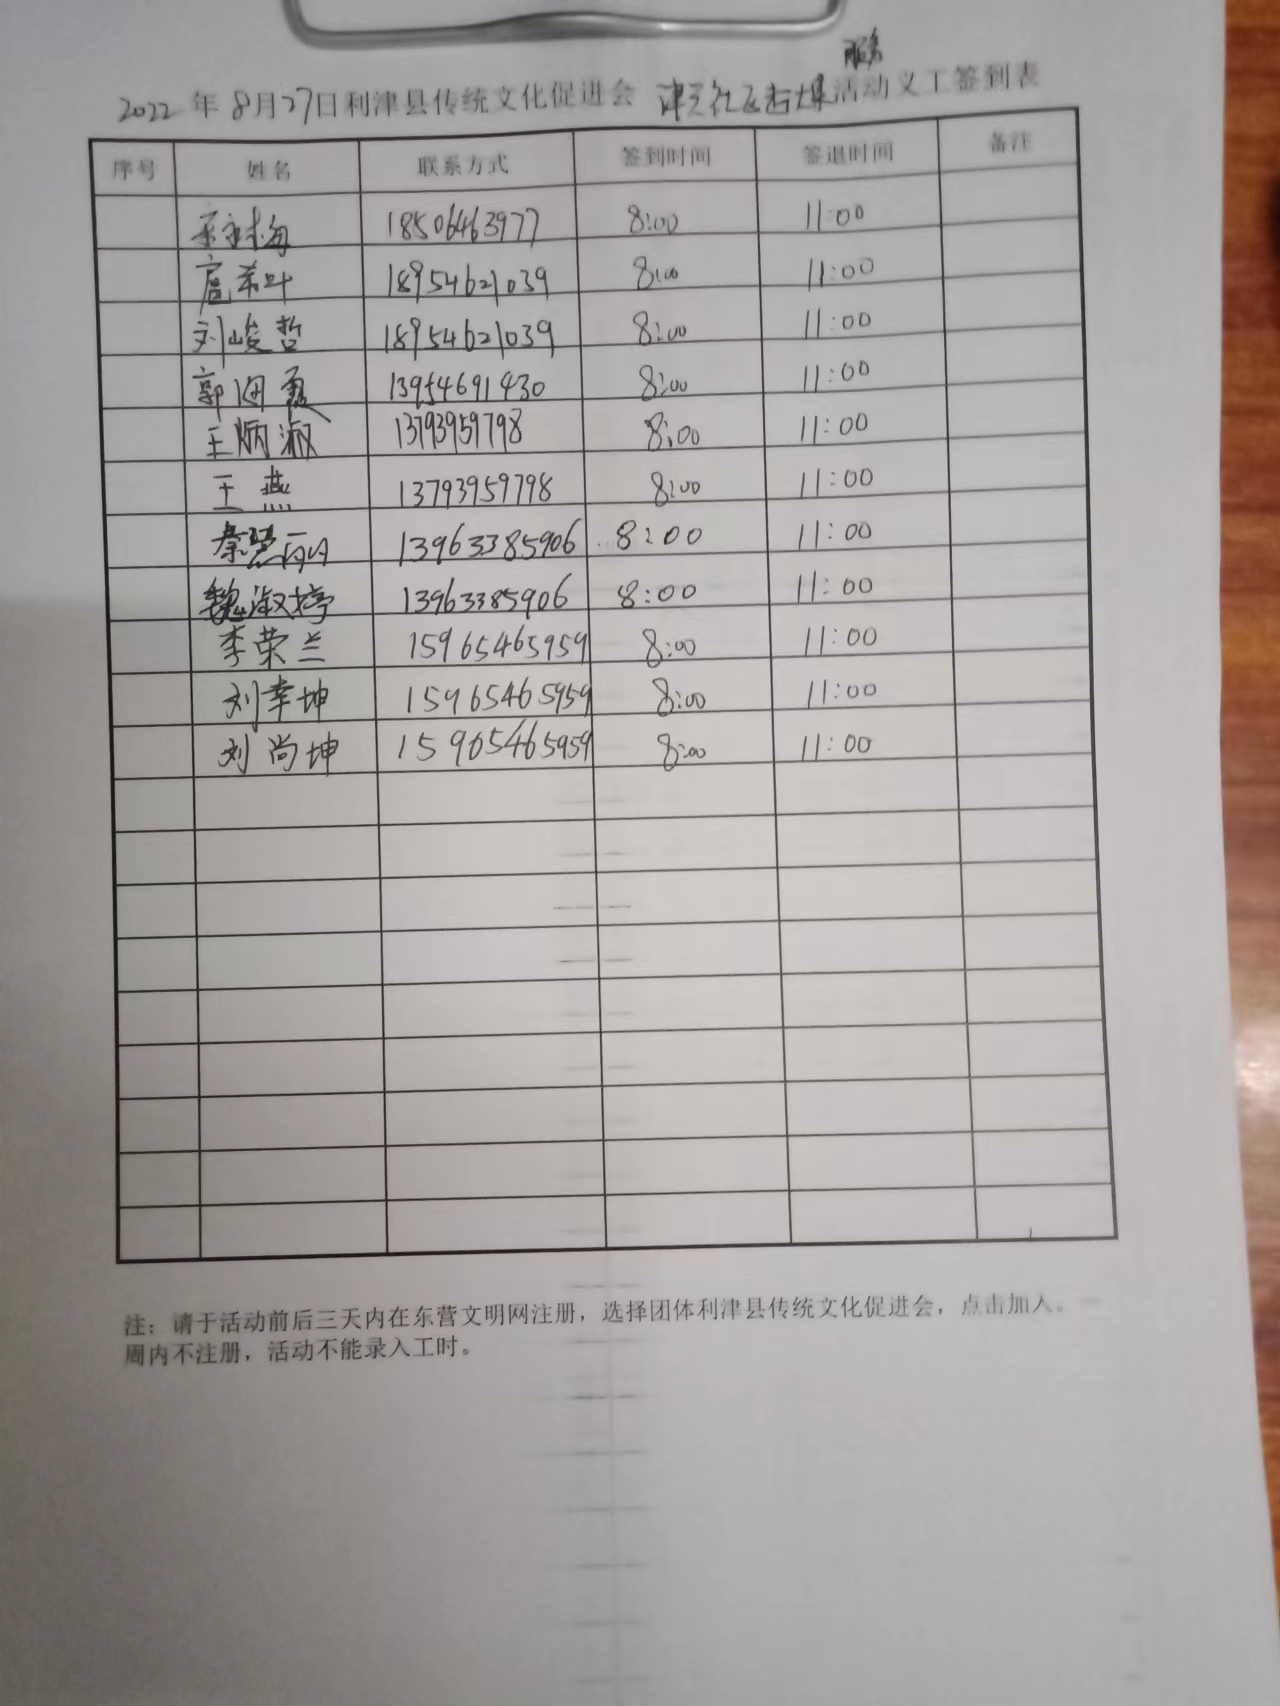 2022年8月27日利津县传统文化促进会 津 社区 活动义工签到表
服务
序号 姓名 联系方式 签到时间 签退时间 备注
梅 18506463977 8:00 11:00
扈希叶 18954621039 8:00 11:00
刘峻哲 18954621039 8:00 11:00
郭 13954691430 8:00 11:00
王炳淑 13793959798 8:00 11:00
王燕 13793959798 8:00 11:00
秦 丽 13963385906 8:00 11:00
魏淑婷 13963385906 8:00 11:00
李荣兰 15965465959 8:00 11:00
刘幸坤 15965465959 8:00 11:00
刘尚坤 15965465959 8:00 11:00
注：请于活动前后三天内在东营文明网注册，选择团体利津县传统文化促进会，点击加入。一
周内不注册，活动不能录入工时。